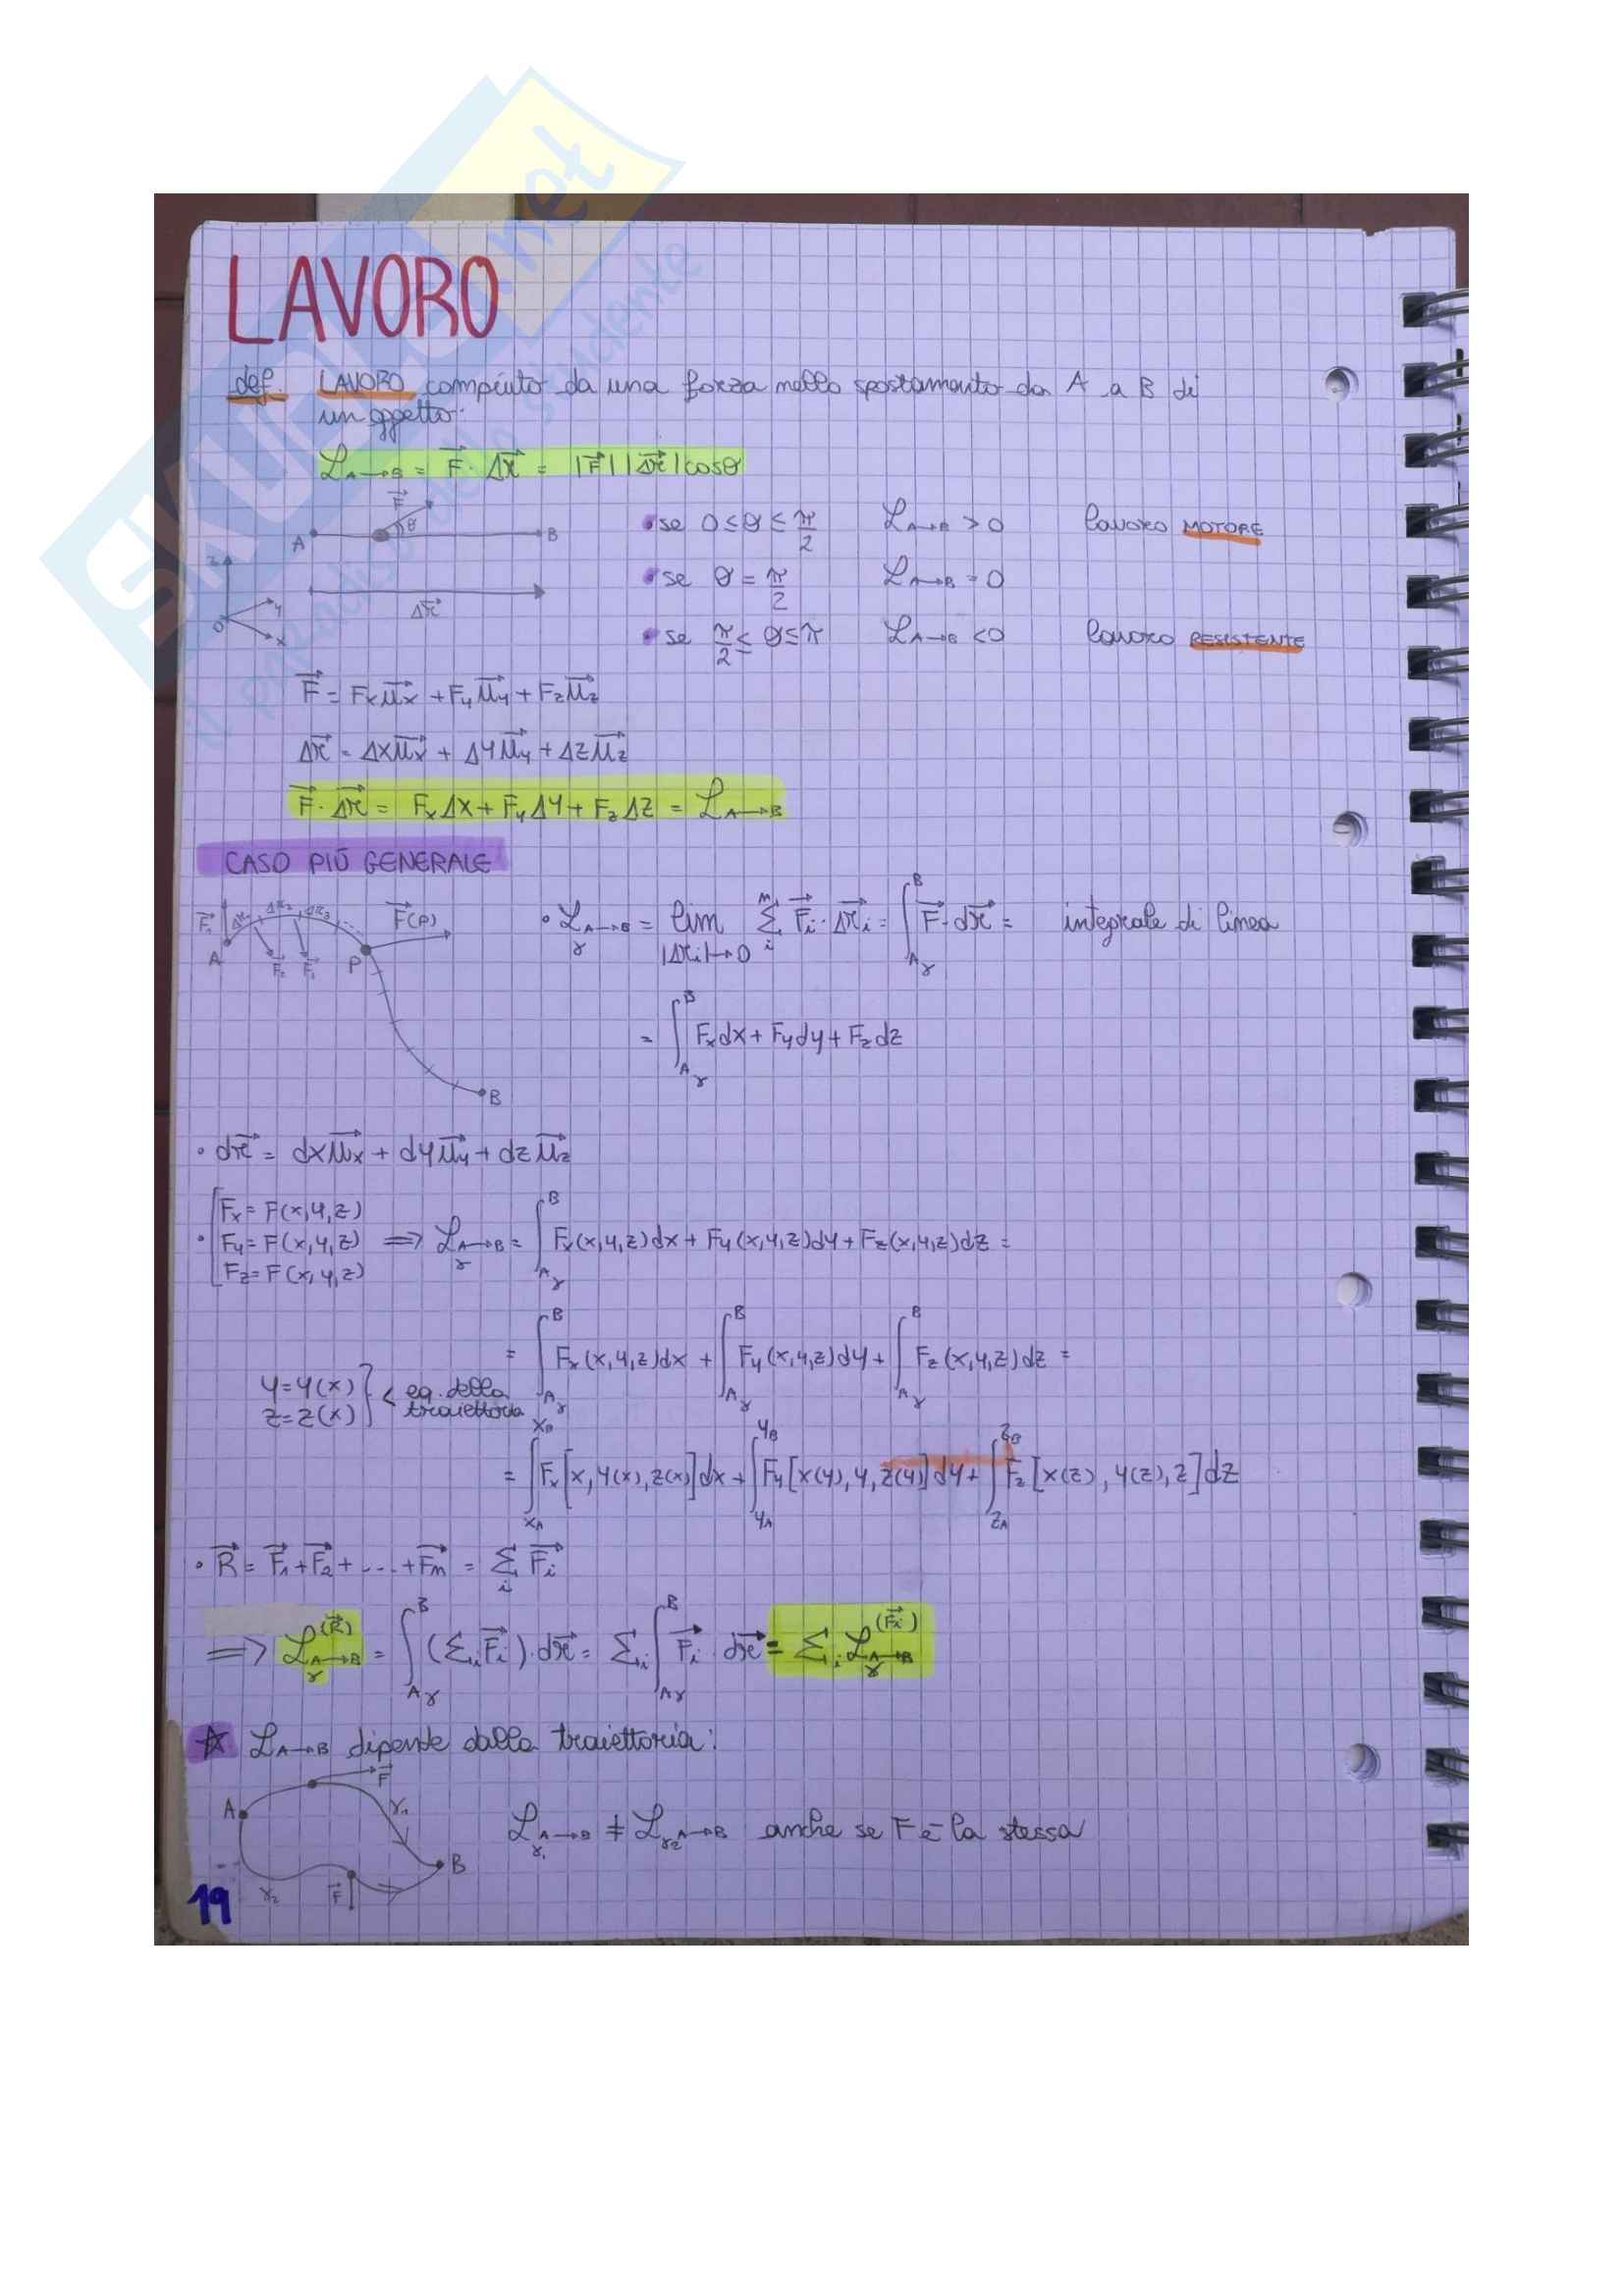 LAVORO
def. LAVORO compiuto da una forza nello spostamento da A a B di
un oggetto:
ℒ A→B = F⃗ · Δr⃗ = |F⃗| |Δr⃗| cosθ
F⃗
θ
A B
• se 0 ≤ θ ≤ π/2 ℒ A→B > 0 lavoro MOTORE
z
y
x
O
Δr⃗
• se θ = π/2 ℒ A→B = 0
• se π/2 ≤ θ ≤ π ℒ A→B < 0 lavoro RESISTENTE
F⃗ = Fx u⃗x + Fy u⃗y + Fz u⃗z
Δr⃗ = Δx u⃗x + Δy u⃗y + Δz u⃗z
F⃗ · Δr⃗ = Fx Δx + Fy Δy + Fz Δz = ℒ A→B
CASO PIÚ GENERALE
F⃗1 Δr1 Δr2 Δr3 F⃗(P)
A P B
• ℒ A→B γ = lim |Δri|→0 Σ i n F⃗i · Δr⃗i = ∫ Aγ B F⃗ · dr⃗ = integrale di linea
= ∫ Aγ B Fx dx + Fy dy + Fz dz
• dr⃗ = dx u⃗x + dy u⃗y + dz u⃗z
Fx = F(x,y,z)
• Fy = F(x,y,z) ⇒ ℒ A→B γ = ∫ Aγ B Fx(x,y,z)dx + Fy(x,y,z)dy + Fz(x,y,z)dz =
Fz = F(x,y,z)
= ∫ Aγ B Fx(x,y,z)dx + ∫ Aγ B Fy(x,y,z)dy + ∫ Aγ B Fz(x,y,z)dz =
y = y(x)
z = z(x) } < eq. della traiettoria
= ∫ xA xB Fx[x, y(x), z(x)]dx + ∫ yA yB Fy[x(y), y, z(y)]dy + ∫ zA zB Fz[x(z), y(z), z]dz
• R⃗ = F⃗1 + F⃗2 + ... + F⃗n = Σ i F⃗i
⇒ ℒ A→B γ (R⃗) = ∫ Aγ B (Σi F⃗i) · dr⃗ = Σi ∫ Aγ B F⃗i · dr⃗ = Σi ℒ A→B γ (F⃗i)
☆ ℒ A→B dipende dalla traiettoria:
F⃗
A γ1
B
γ2 F⃗
ℒ γ1 A→B ≠ ℒ γ2 A→B anche se F è la stessa
19